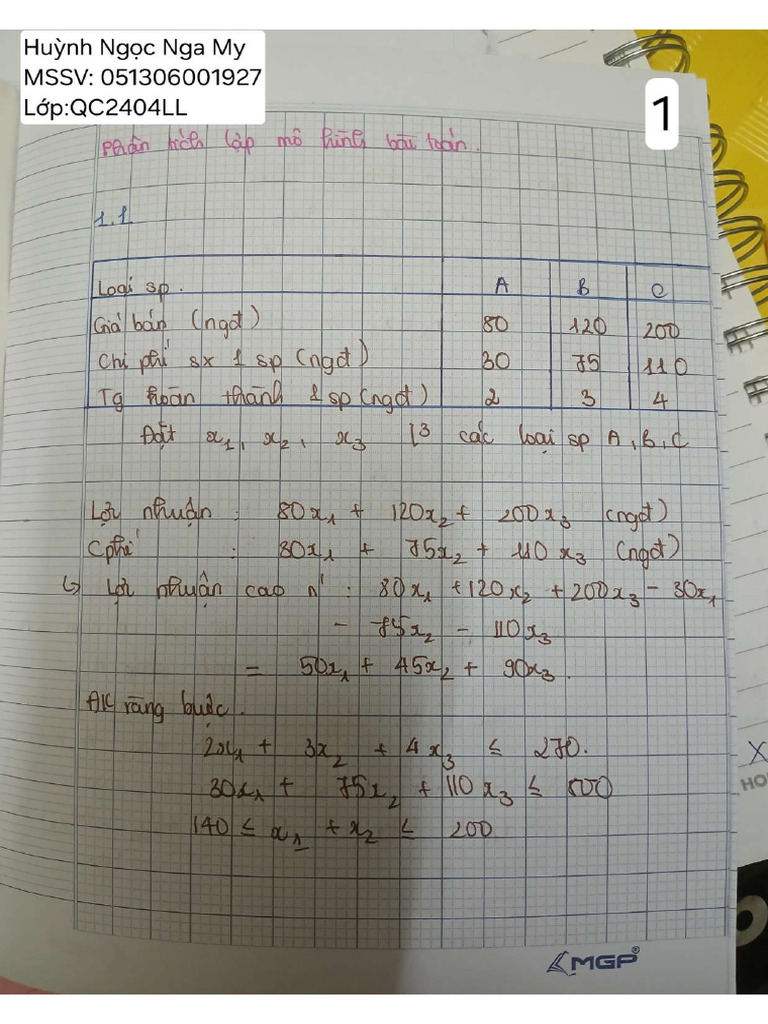 Huỳnh Ngọc Nga My
MSSV: 051306001927
Lớp:QC2404LL
1
Phân tích lập mô hình bài toán.
1.1
Loại sp. A B C
Giá bán (ngđ) 80 120 200
Chi phí sx 1 sp (ngđ) 30 75 110
Tg hoàn thành 1 sp (ngđ) 2 3 4
Đặt x₁, x₂, x₃ là các loại sp A, B, C
Lợi nhuận : 80x₁ + 120x₂ + 200x₃ (ngđ)
Cphí : 30x₁ + 75x₂ + 110x₃ (ngđ)
↳ Lợi nhuận cao n' : 80x₁ + 120x₂ + 200x₃ - 30x₁
- 75x₂ - 110x₃
= 50x₁ + 45x₂ + 90x₃.
ĐK ràng buộc.
2x₁ + 3x₂ + 4x₃ ≤ 270.
30x₁ + 75x₂ + 110x₃ ≤
140 ≤ x₁ + x₂ ≤ 200
X
HO
MGP